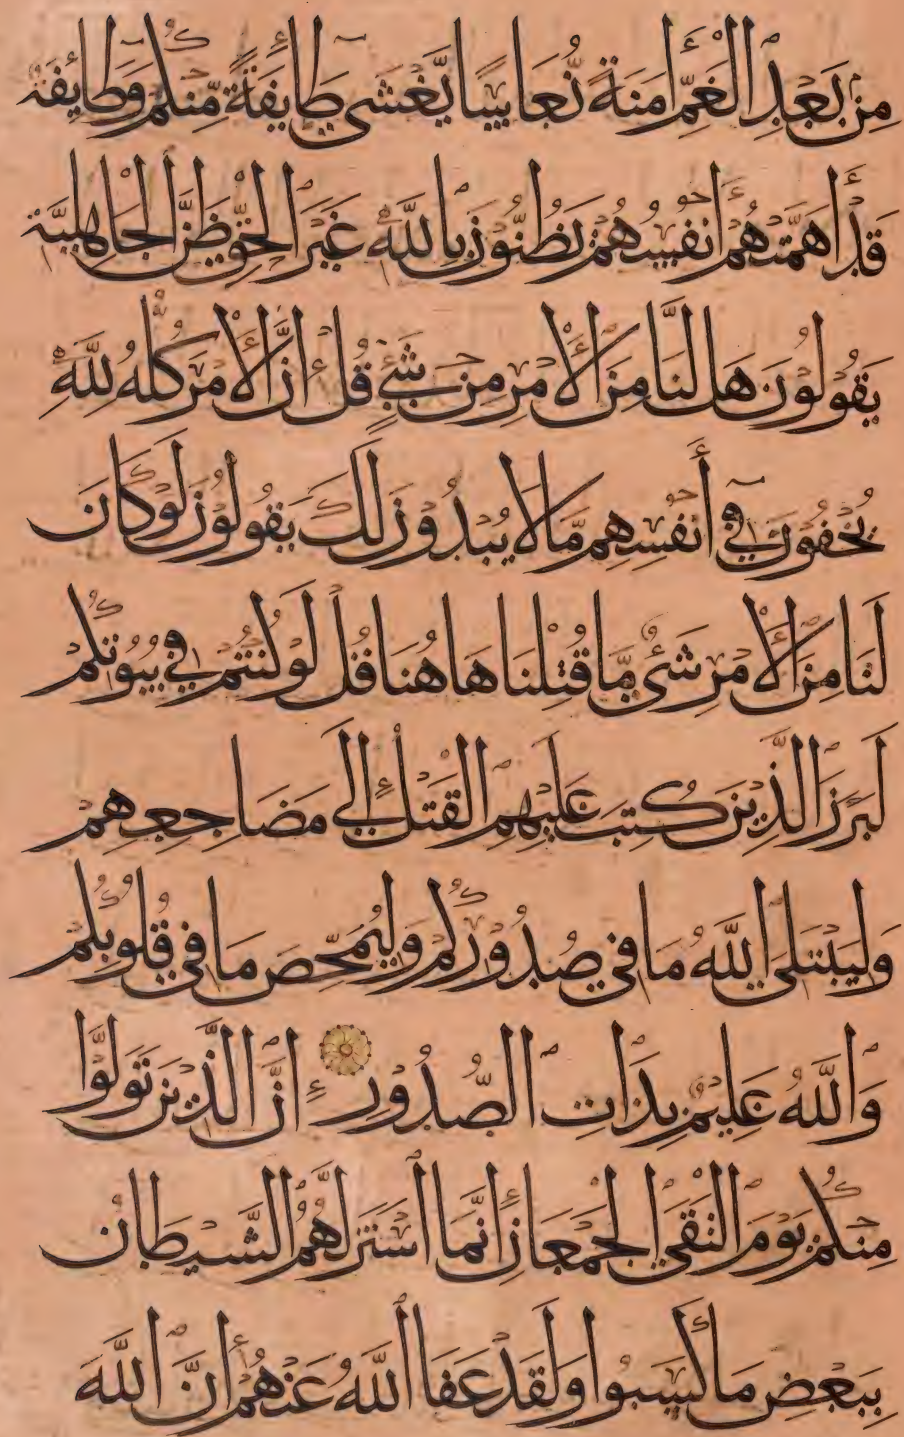 مِنْ بَعْدِ الْغَمِّ أَمَنَةً نُّعَاسًا يَّغْشَى طَآئِفَةً مِّنْكُمْ وَطَآئِفَةٌ
قَدْ أَهَمَّتْهُمْ أَنْفُسُهُمْ يَظُنُّونَ بِاللَّهِ غَيْرَ الْحَقِّ ظَنَّ الْجَاهِلِيَّةِ
يَقُولُونَ هَل لَّنَا مِنَ الْأَمْرِ مِنْ شَيْءٍ قُلْ إِنَّ الْأَمْرَ كُلَّهُ لِلَّهِ
يُخْفُونَ فِي أَنْفُسِهِمْ مَّا لَا يُبْدُونَ لَكَ يَقُولُونَ لَوْ كَانَ
لَنَا مِنَ الْأَمْرِ شَيْءٌ مَّا قُتِلْنَا هَاهُنَا قُلْ لَوْ كُنْتُمْ فِي بُيُوتِكُمْ
لَبَرَزَ الَّذِينَ كُتِبَ عَلَيْهِمُ الْقَتْلُ إِلَى مَضَاجِعِهِمْ
وَلِيَبْتَلِيَ اللَّهُ مَا فِي صُدُورِكُمْ وَلِيُمَحِّصَ مَا فِي قُلُوبِكُمْ
وَاللَّهُ عَلِيمٌ بِذَاتِ الصُّدُورِ إِنَّ الَّذِينَ تَوَلَّوْا
مِنْكُمْ يَوْمَ الْتَقَى الْجَمْعَانِ إِنَّمَا اسْتَزَلَّهُمُ الشَّيْطَانُ
بِبَعْضِ مَا كَسَبُوا وَلَقَدْ عَفَا اللَّهُ عَنْهُمْ إِنَّ اللَّهَ